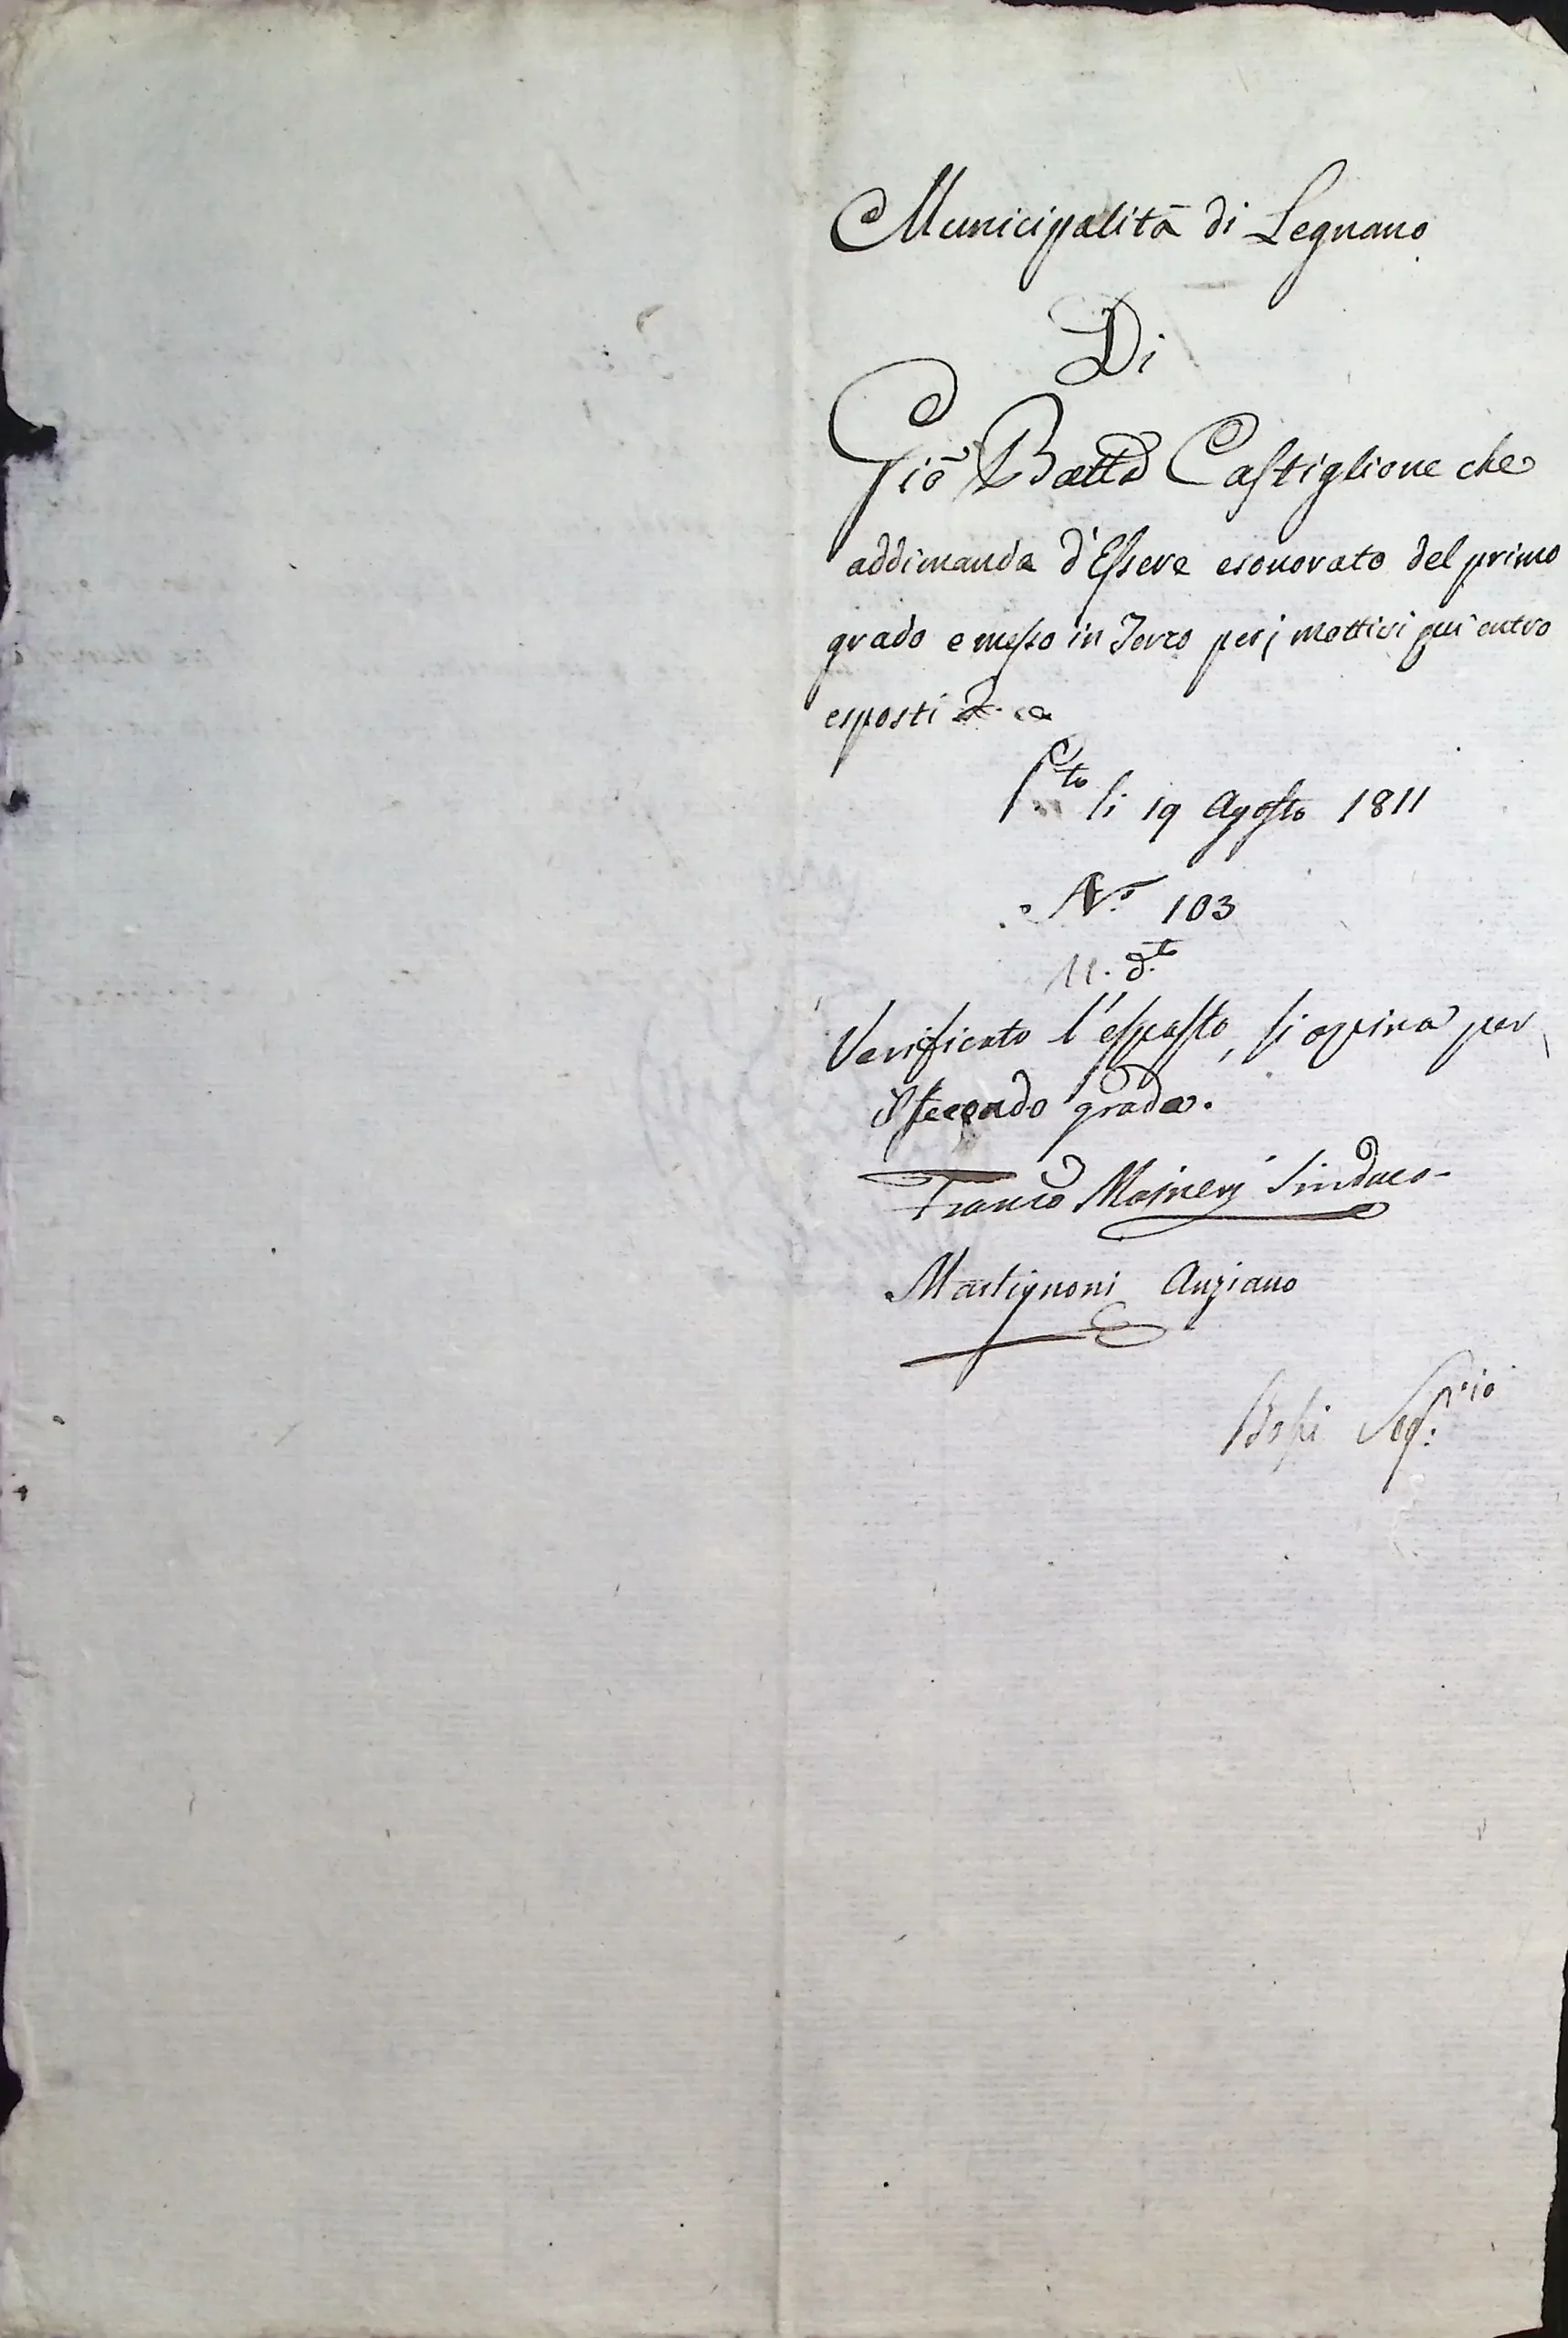 Municipalità di Legnano
Di
Giō Batta Castiglione che
addimanda d'Essere esonorato del primo
grado e messo in Terzo per j mottivi qui entro
esposti
li 19 Agosto 1811
N.° 103
11. d.to
Verificato l'esposto, si opina per
secondo grado.
Franco Mainerj Sindaco
Martignoni Anziano
Bossi Seg.rio